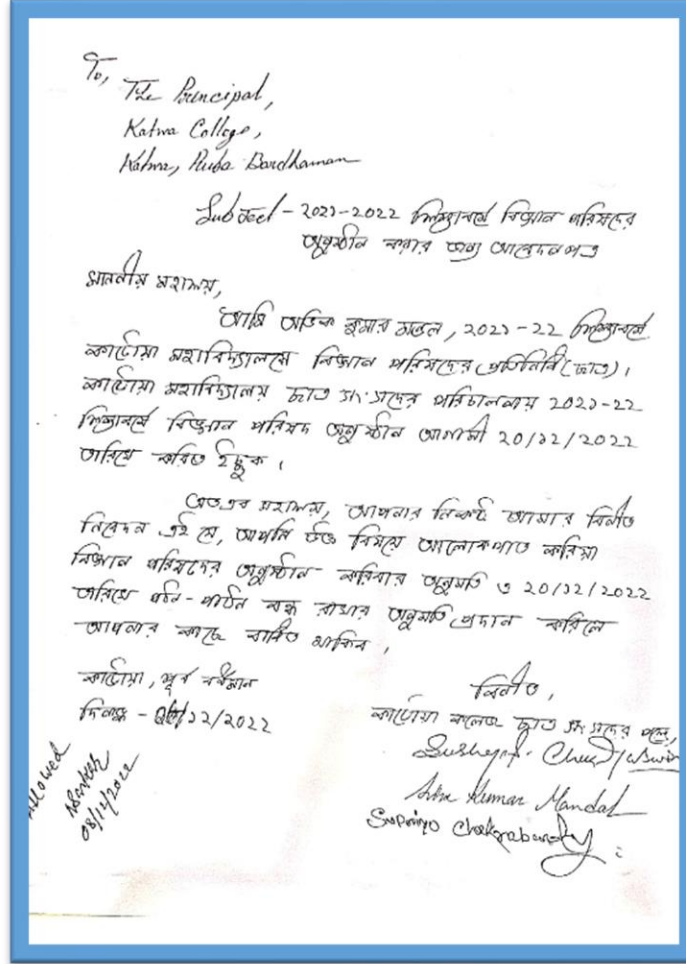 To,
The Principal,
Katwa College,
Katwa, Purba Bardhaman
Subject - ২০২১-২০২২ শিক্ষাবর্ষে বিজ্ঞান পরিষদের
অনুষ্ঠান করার জন্য আবেদন পত্র
মাননীয় মহাশয়,
আমি অভিক কুমার মন্ডল, ২০২১-২২ শিক্ষাবর্ষে
কাটোয়া মহাবিদ্যালয়ে বিজ্ঞান পরিষদের প্রতিনিধি (ছাত্র)।
কাটোয়া মহাবিদ্যালয় ছাত্র সংসদের পরিচালনায় ২০২১-২২
শিক্ষাবর্ষে বিজ্ঞান পরিষদ অনুষ্ঠান আগামী ২০/১২/২০২২
তারিখে করিতে ইচ্ছুক।
অতএব মহাশয়, আপনার নিকট আমার বিনীত
নিবেদন এই যে, আপনি উক্ত বিষয়ে আলোকপাত করিয়া
বিজ্ঞান পরিষদের অনুষ্ঠান করিবার অনুমতি ও ২০/১২/২০২২
তারিখে পঠন-পাঠন বন্ধ রাখার অনুমতি প্রদান করিলে
আপনার কাছে বাধিত থাকিব।
কাটোয়া, পূর্ব বর্ধমান
দিনাঙ্ক - /১২/২০২২
বিনীত,
কাটোয়া কলেজ ছাত্র সংসদের পক্ষে,
Kumar Mandal
Supriyo Chakraborty
Allowed
08/12/2022